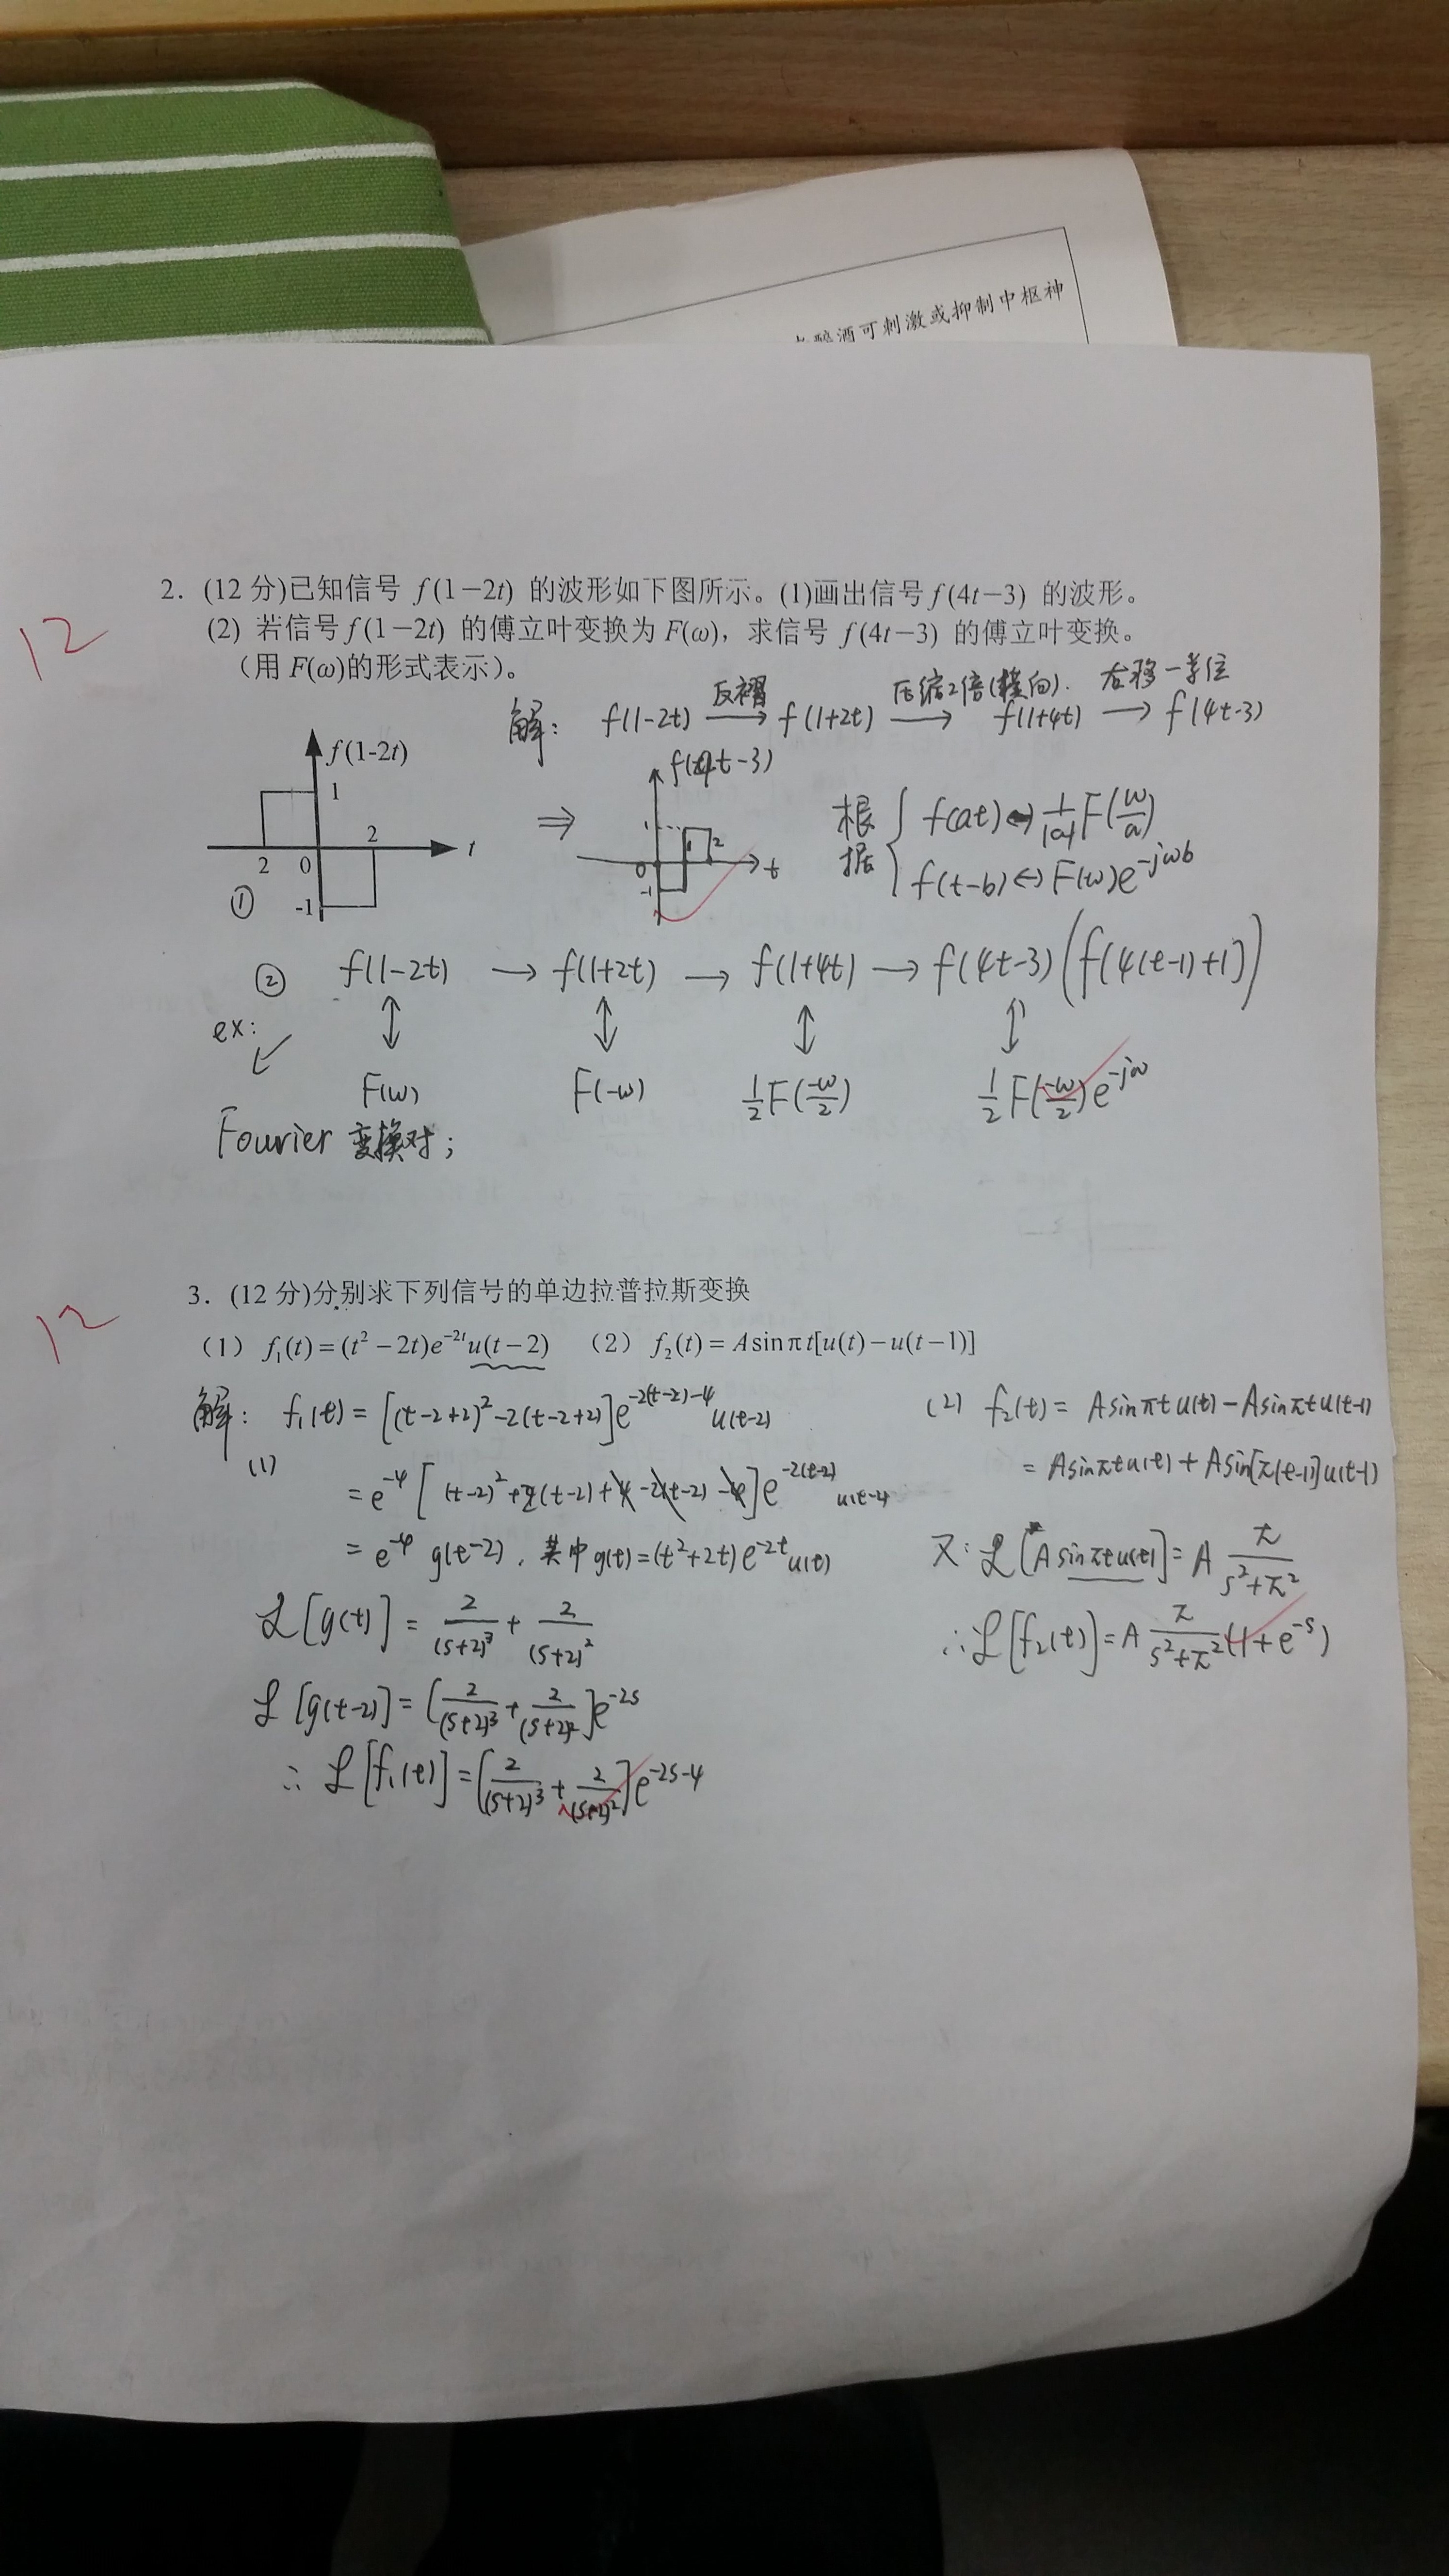 醉酒可刺激或抑制中枢神
12
2. (12 分)已知信号 f(1−2t) 的波形如下图所示。(1)画出信号 f(4t−3) 的波形。
(2) 若信号 f(1−2t) 的傅立叶变换为 F(ω)，求信号 f(4t−3) 的傅立叶变换。
（用 F(ω)的形式表示）。
反褶 压缩2倍(横向). 右移一单位
解: f(1-2t) ⟶ f(1+2t) ⟶ f(1+4t) ⟶ f(4t-3)
f(1-2t)
1
2
t
2 0
-1
①
⇒
f(4t-3)
1
1 2
0 t
-1
根据 { f(at) ↔ 1/|a| F(ω/a)
f(t-b) ↔ F(ω)e^{-jωb}
② f(1-2t) → f(1+2t) → f(1+4t) → f(4t-3) (f(4(t-1)+1))
ex: ↙ ↕ ↕ ↕ ↕
F(ω) F(-ω) 1/2 F(-ω/2) 1/2 F(-ω/2) e^{-jω}
Fourier 变换对;
12
3. (12 分)分别求下列信号的单边拉普拉斯变换
（1）f₁(t) = (t² − 2t)e^{−2t}u(t−2) （2）f₂(t) = A sin πt[u(t) − u(t−1)]
解: f₁(t) = [(t-2+2)²-2(t-2+2)]e^{-2(t-2)-4}u(t-2)
(1)
= e^{-4} [(t-2)²+4(t-2)+4-2(t-2)-4]e^{-2(t-2)}u(t-2)
= e^{-4} g(t-2), 其中 g(t)=(t²+2t)e^{-2t}u(t)
ℒ[g(t)] = 2/(s+2)³ + 2/(s+2)²
ℒ[g(t-2)] = [2/(s+2)³ + 2/(s+2)²]e^{-2s}
∴ ℒ[f₁(t)] = [2/(s+2)³ + 2/(s+2)²]e^{-2s-4}
(2) f₂(t) = Asinπt u(t) - Asinπt u(t-1)
= Asinπt u(t) + Asin[π(t-1)]u(t-1)
又: ℒ[Asinπt u(t)] = A π/(s²+π²)
∴ ℒ[f₂(t)] = A π/(s²+π²) (1+e^{-s})